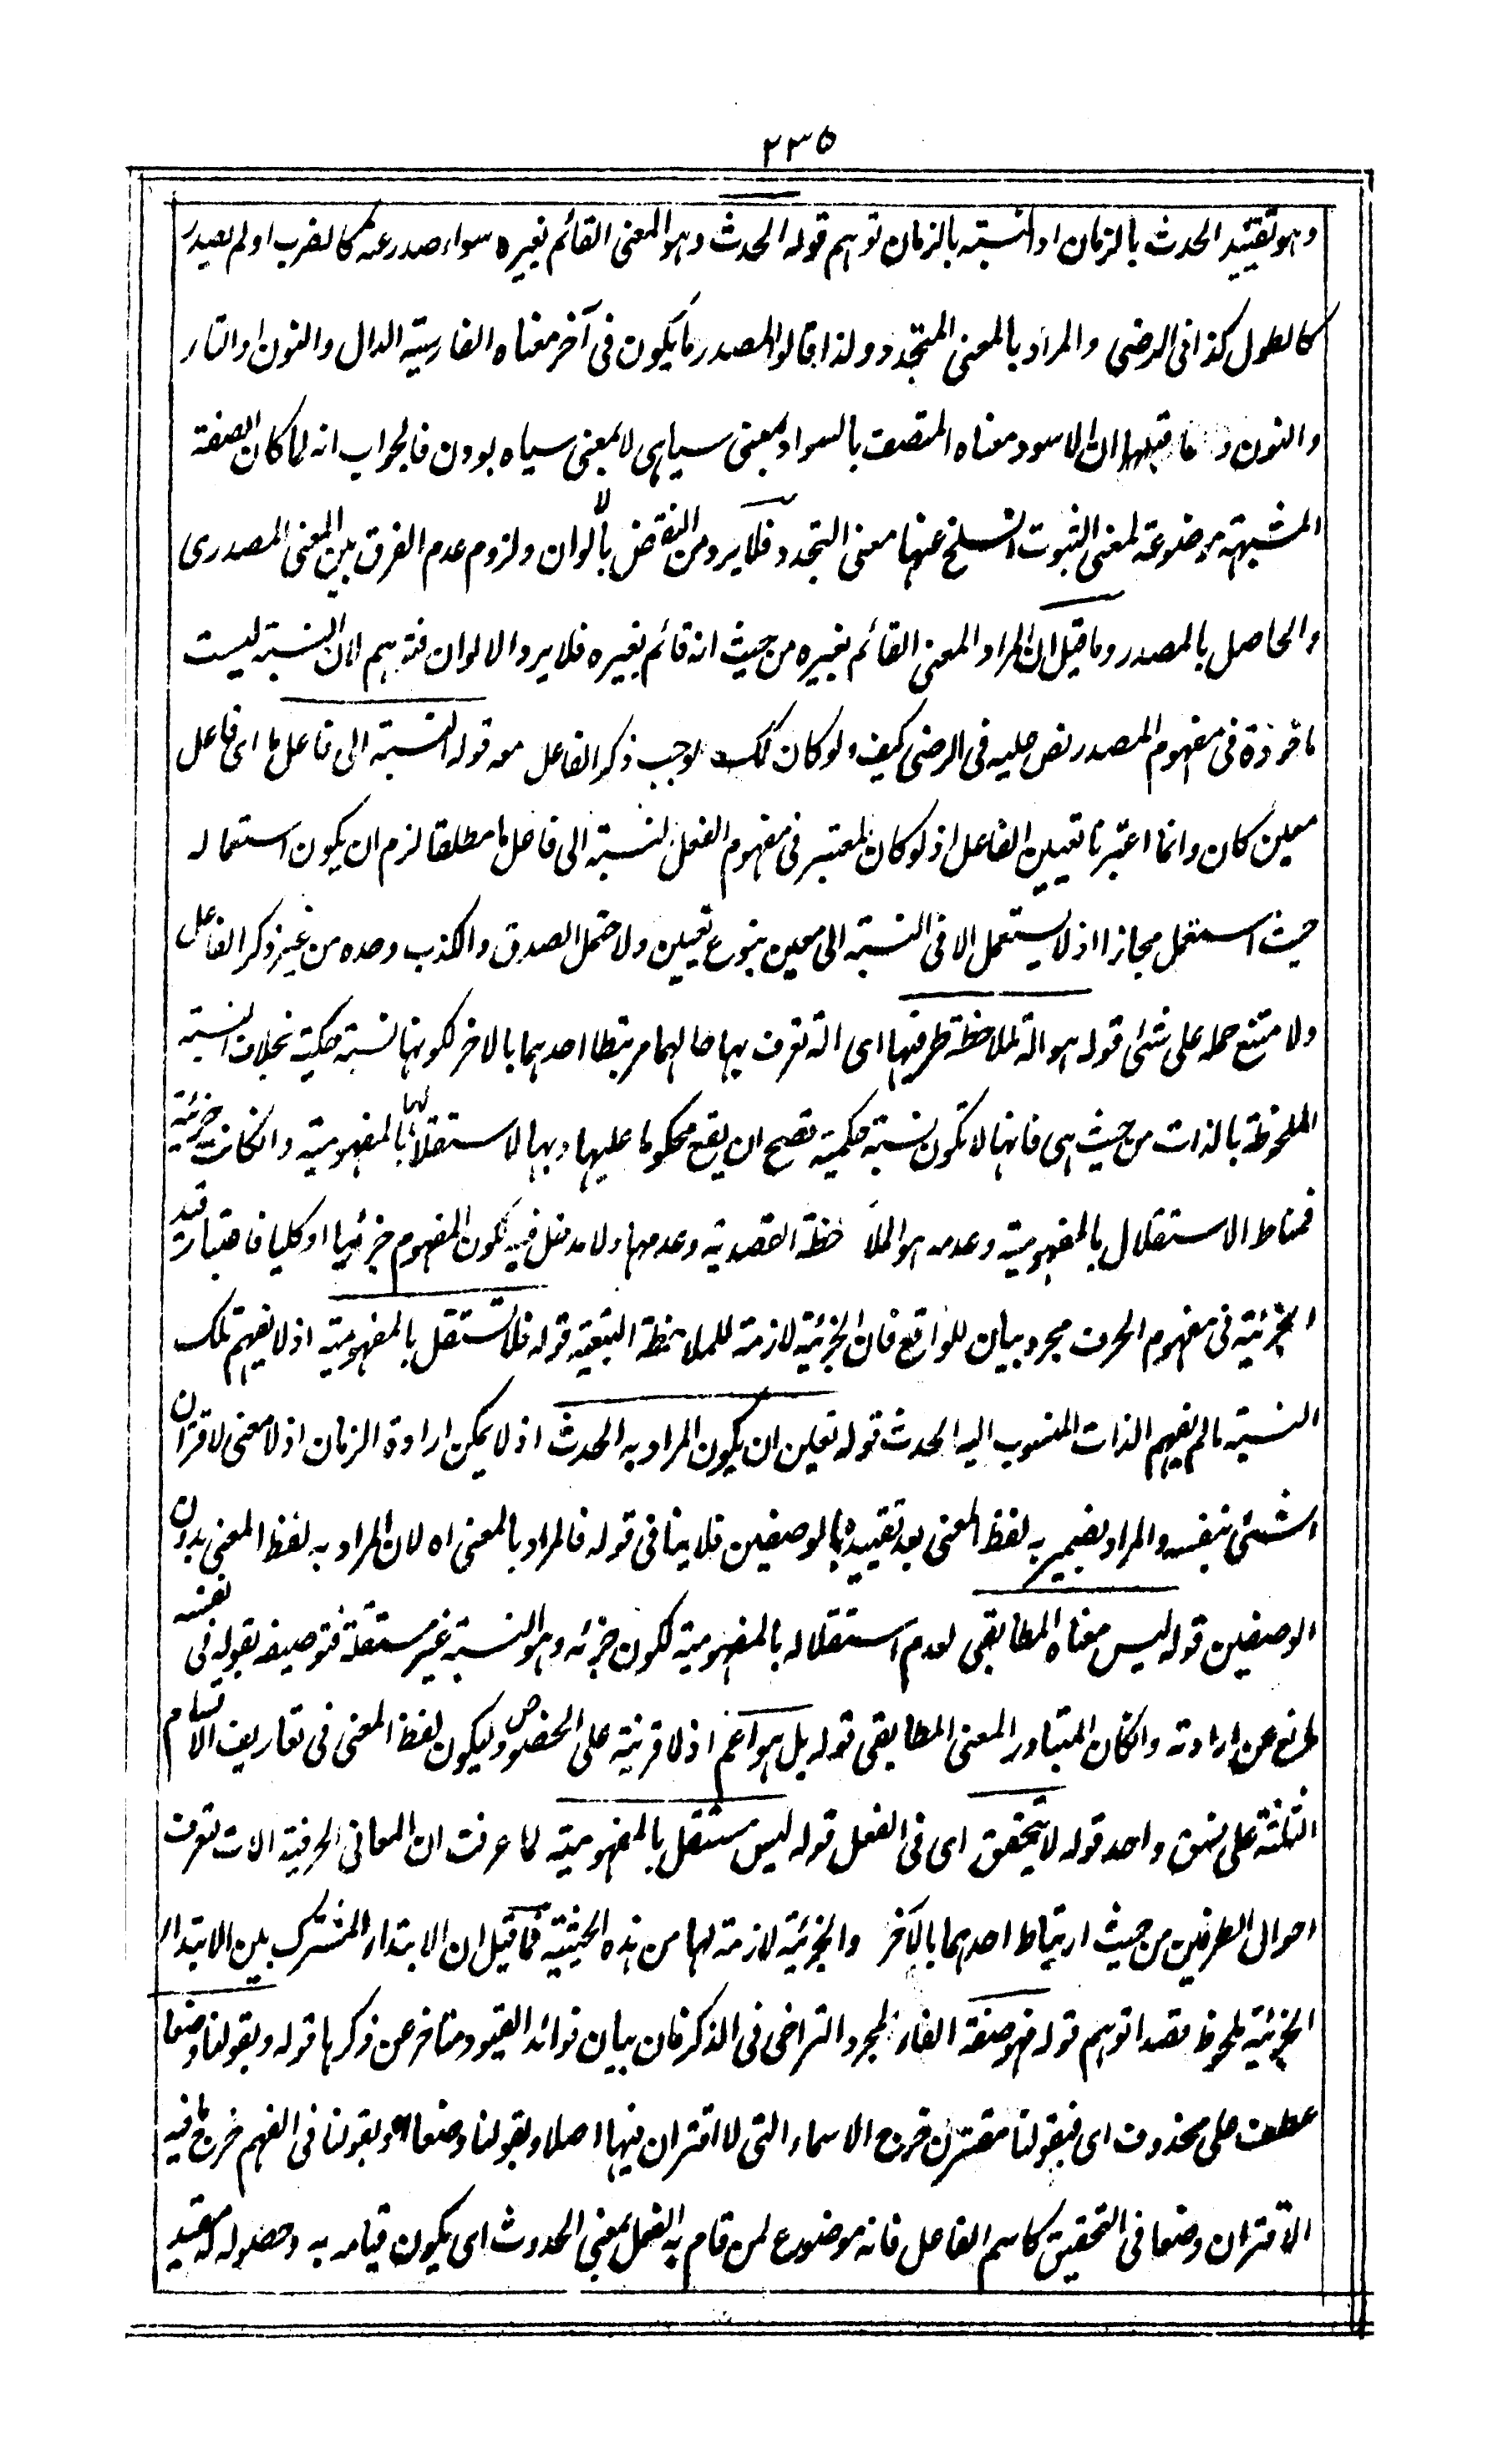 ٢٣٥
وهو تقييد الحدث بالزمان او النسبته بالزمان توهم قوله الحدث وهو المعنى القائم بغيره سواء صدر عنه كالضرب او لم يصدر
كالطول كذا فى الرضى والمراد بالمعنى المتجدد ولذا قالوا المصدر ما يكون فى آخر معناه الفارسية الدال والنون او التاء
والنون و ما قيل ان الاسود معناه المتصف بالسواد بمعنى سياهى لا بمعنى سياه بودن فالجواب انه لما كان الصفة
المشبهة موضوعة لمعنى الثبوت انسلخ عنها معنى التجدد فلا يرد من النقض بالالوان ولزوم عدم الفرق بين المعنى المصدرى
والحاصل بالمصدر وما قيل ان المراد المعنى القائم بغيره من حيث انه قائم بغيره فلا يرد الالوان فتوهم لان النسبة ليست
ماخوذة فى مفهوم المصدر نص عليه فى الرضى كيف ولو كان كك لوجب ذكر الفاعل معه قوله النسبة الى فاعل ما اى فاعل
معين كان وانما اعتبرنا تعيين الفاعل اذ لو كان المعتبر فى مفهوم الفعل النسبة الى فاعل ما مطلقا لزم ان يكون استعماله
حيث استعمل مجازا اذ لا يستعمل الا فى النسبة الى معين بنوع تعيين ولا حتمل الصدق والكذب وحده من غير ذكر الفاعل
ولا متنع حمله على شئى قوله هو الة لملاحظة طرفيها اى الة تعرف بها حالهما مرتبطا احدهما بالاخر لكونها نسبة حكمية بخلاف النسبة
الملحوظة بالذات من حيث هى فانها لا تكون نسبة حكمية تصح ان يقع محكوما عليها وبها لاستقلالها بالمفهومية وانكانت جزئية
فمناط الاستقلال بالمفهومية وعدمه هو الملاحظة القصدية وعدمها ولا مدخل فيه لكون المفهوم جزئيا او كليا فاعتبار قيد
الجزئية فى مفهوم الحرف مجرد بيان للواقع فان الجزئية لازمة للملاحظة التبعية قوله فلا تستقل بالمفهومية اذ لا يفهم تلك
النسبة ما لم يفهم الذات المنسوب اليه الحدث قوله تعين ان يكون المراد به الحدث اذ لا يمكن ارادة الزمان اذ لا معنى لاقتران
الشئى بنفسه والمراد بضمير به لفظ المعنى بعد تقييده بالوصفين فلا ينافى قوله فالمراد بالمعنى اه لان المراد به لفظ المعنى بدون
الوصفين قوله ليس معناه المطابقى لعدم استقلاله بالمفهومية لكون جزئه وهو النسبة غير مستقلة فتوصيفه بقوله فى نفسه
مانع عن ارادته وانكان المتبادر المعنى المطابقى قوله بل هو اعم اذ لا قرينة على الخصوص وليكون لفظ المعنى فى تعاريف الاقسام
الثلثة على نسق واحد قوله لا يتحقق اى فى الفعل قوله ليس مستقل بالمفهومية لما عرفت ان المعانى الحرفية الات تعرف
احوال الطرفين من حيث ارتباط احدهما بالآخر والجزئية لازمة لها من هذه الحيثية فما قيل ان الابتداء المشترك بين الابتداء
الجزئية ملحوظ قصدا توهم قوله فهو صفة الفاء لمجرد التراخى فى الذكر فان بيان فوائد القيود متاخر عن ذكرها قوله وبقولنا وضعا
عطف على محذوف اى فبقولنا مقترن خرج الاسماء التى لا اقتران فيها اصلا وبقولنا وضعا وبقولنا فى الفهم خرج ما فيه
الاقتران وضعا فى التحقيق كاسم الفاعل فانه موضوع لمن قام به الفعل بمعنى الحدوث اى يكون قيامه به وحصوله له مقيد